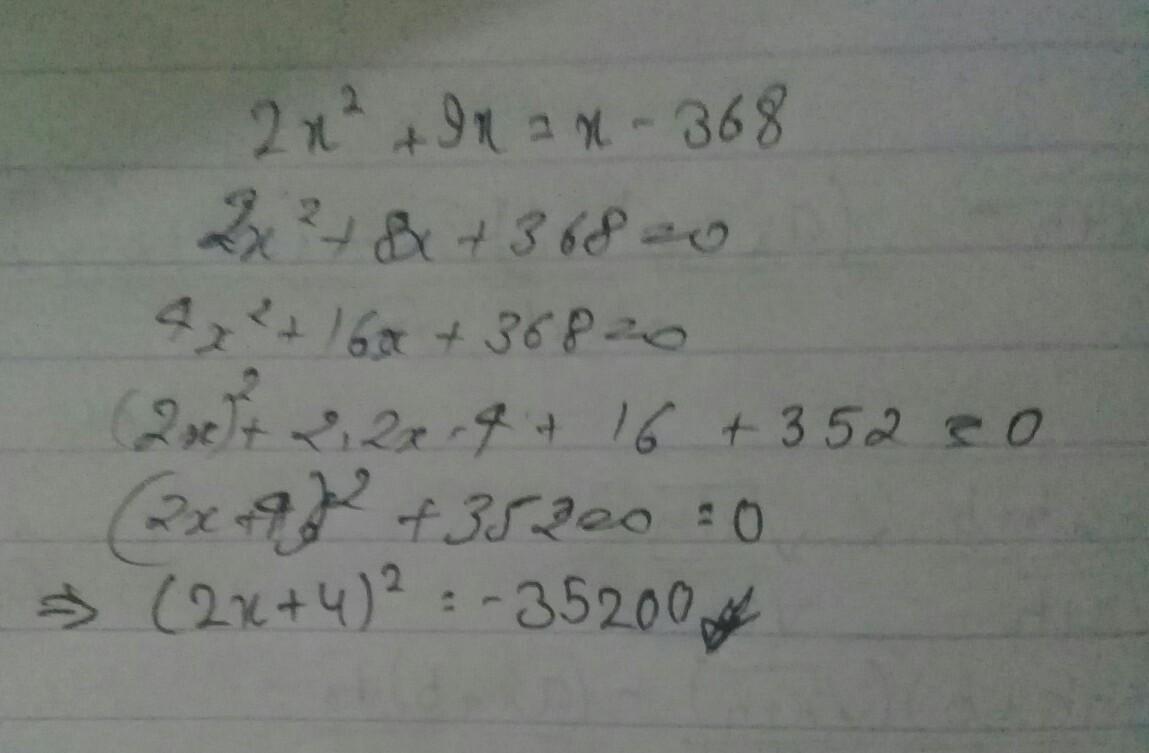 2x² + 9x = x - 368
2x² + 8x + 368 = 0
4x² + 16x + 368 = 0
(2x)² + 2.2x.4 + 16 + 352 = 0
(2x+4)² + 35200 = 0
⇒ (2x+4)² = -35200